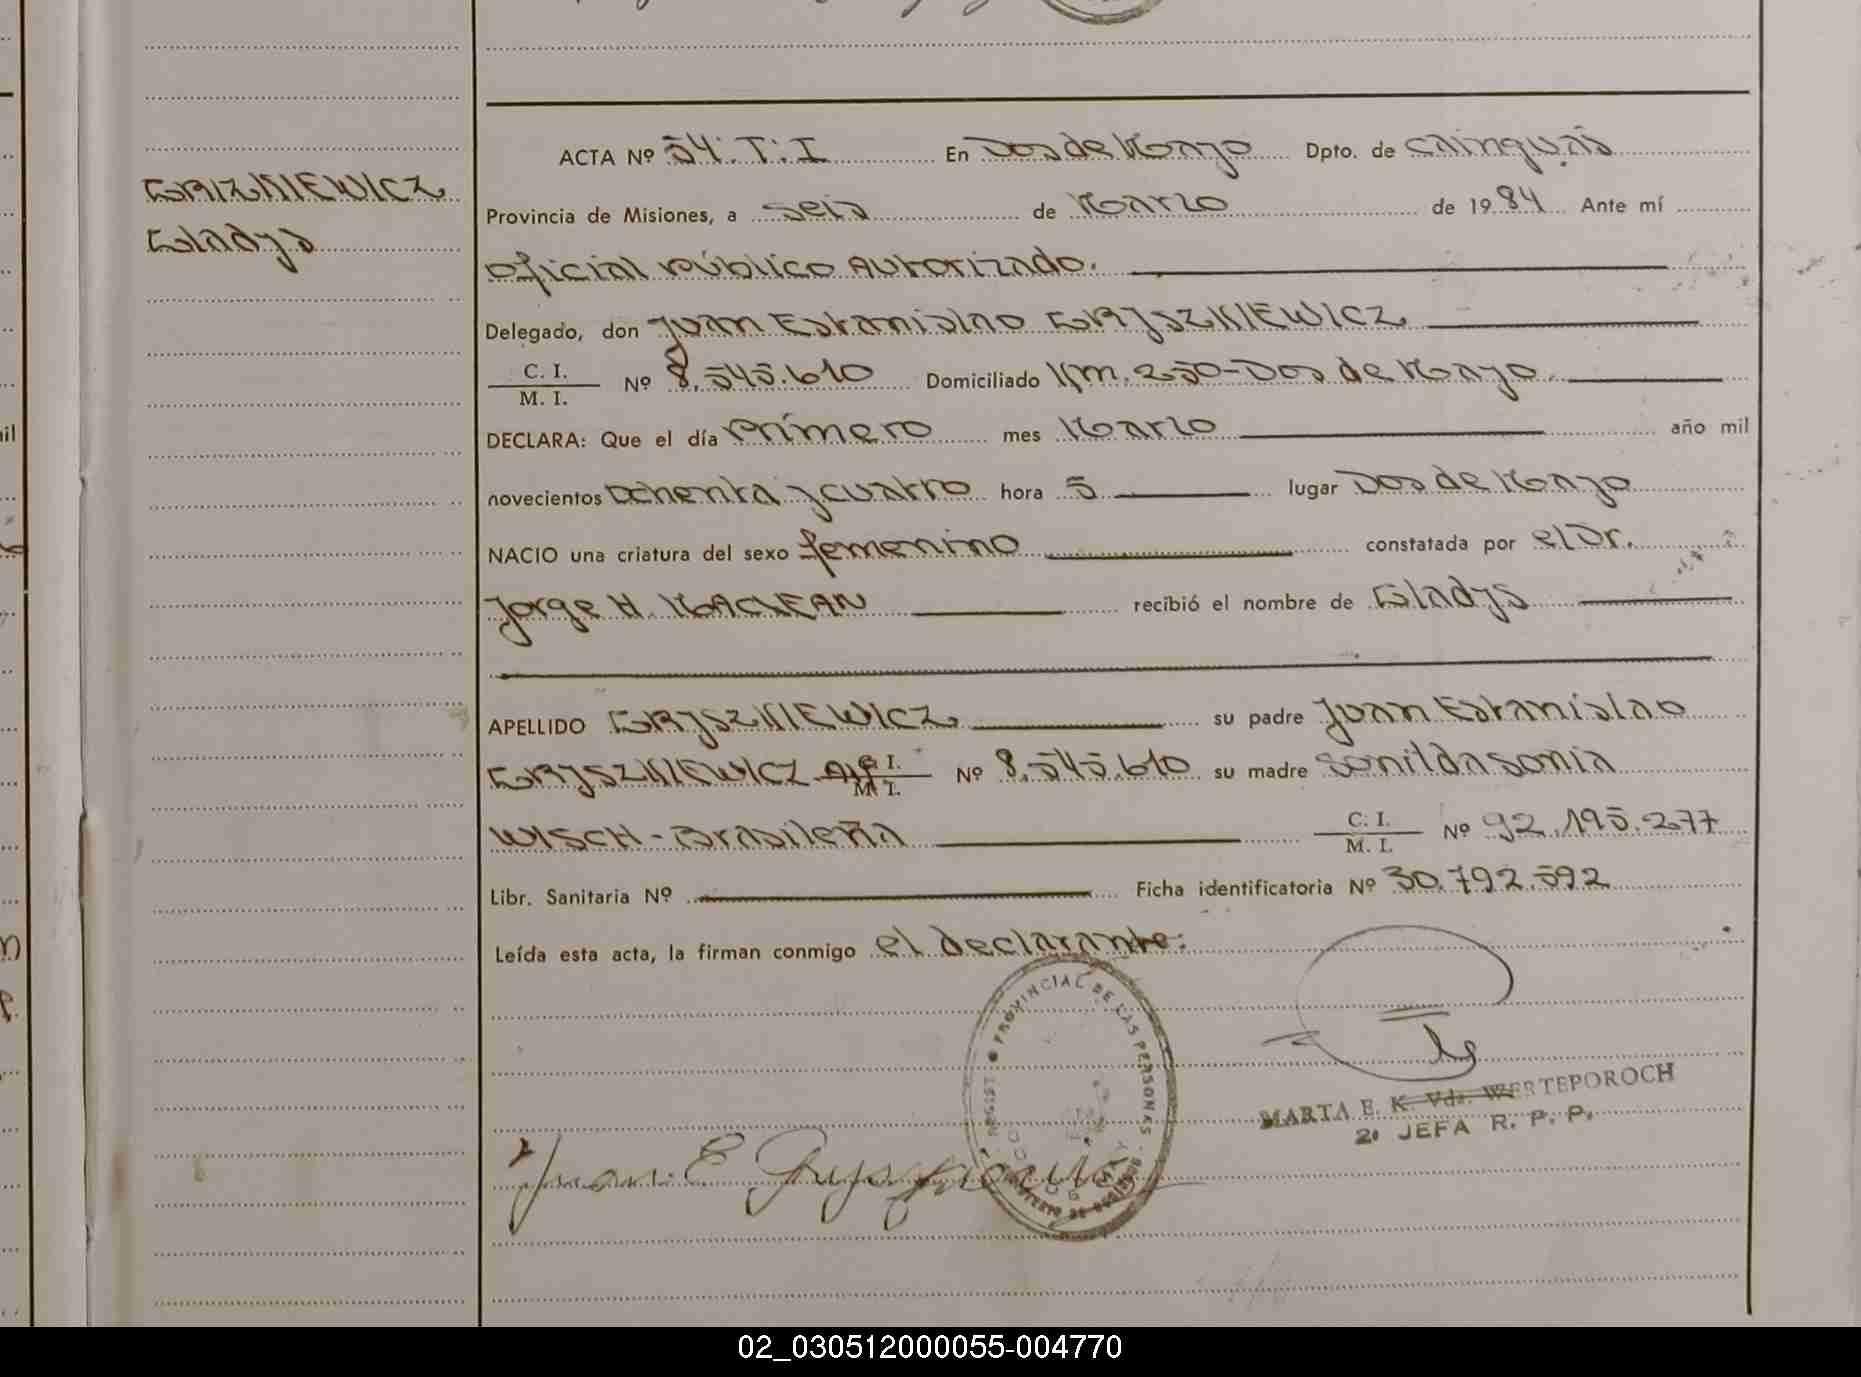 GRIZKIEWICZ
Gladys
ACTA Nº 54.T.I En Dos de Mayo Dpto. de Cainguás
Provincia de Misiones, a seis de Marzo de 1984 Ante mí
oficial público Autorizado.
Delegado, don Juan Estanislao GRYSZKIEWICZ
C. I.
M. I. Nº 8.545.610 Domiciliado Km. 250-Dos de Mayo.
DECLARA: Que el día primero mes Marzo año mil
novecientos ochenta y cuatro hora 5 lugar Dos de Mayo
NACIO una criatura del sexo femenino constatada por el Dr.
Jorge H. MACLEAN recibió el nombre de Gladys
APELLIDO GRYSZKIEWICZ su padre Juan Estanislao
GRYSZKIEWICZ C. I.
M. I. Nº 8.545.610 su madre Sonilda Sonia
WISCH - Brasileña C. I.
M. I. Nº 92.195.277
Libr. Sanitaria Nº Ficha identificatoria Nº 30.792.592
Leída esta acta, la firman conmigo el declarante:
REGIST PROVINCIAL DE LAS PERSONAS
MARTA E. K. Vda. WERTEPOROCH
2ª JEFA R. P. P.
Juan E Gryszkiewicz
02_030512000055-004770